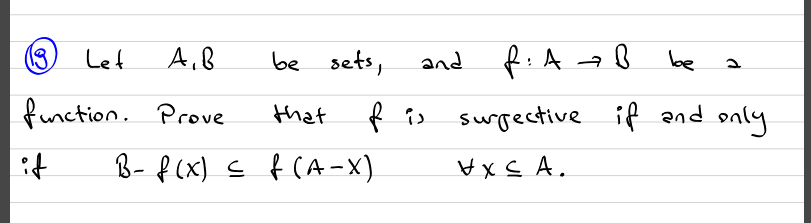 19 Let A,B be sets, and f: A → B be a
function. Prove that f is surjective if and only
if B- f(X) ⊆ f(A-X) ∀X ⊆ A.